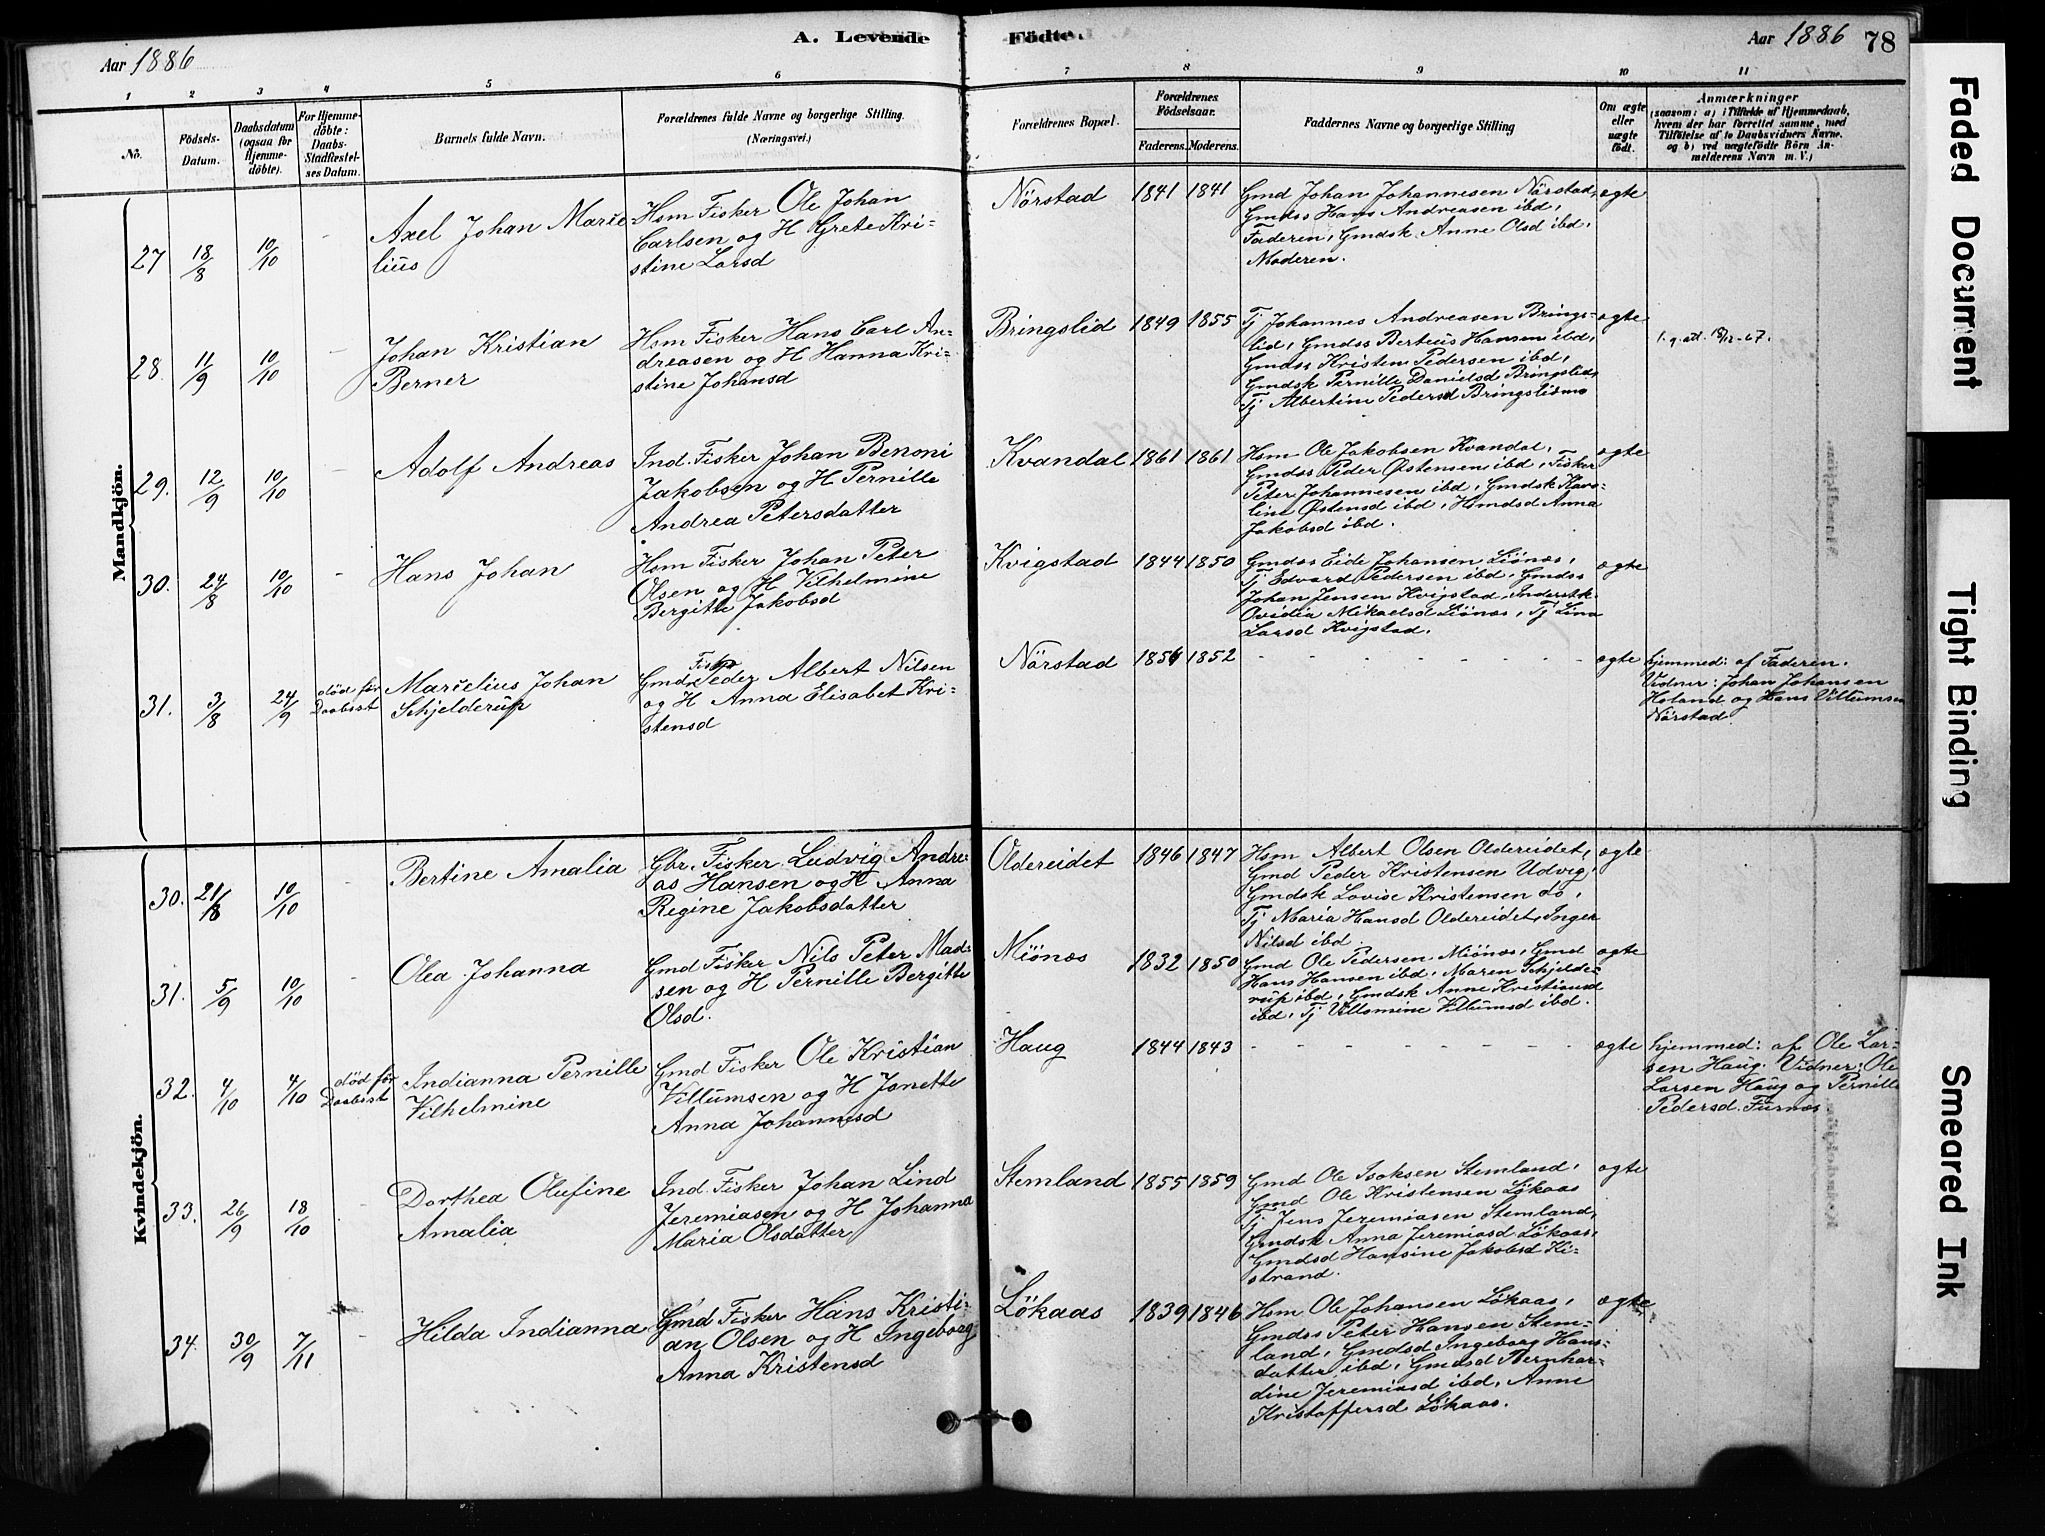 A. Levende Födte.
Aar 1886
Aar 1886 78
1 2 3 4 5 6 7 8 9 10 11
No.
Födsels-
Datum.
Daabsdatum
(ogsaa for
Hjemme-
döbte).
For Hjemme-
döbte:
Daabs-
Stadfæstel-
ses Datum.
Barnets fulde Navn.
Forældrenes fulde Navne og borgerlige Stilling.
(Næringsvei.)
Forældrenes Bopæl.
Forældrenes
Födselsaar.
Faderens. Moderens.
Faddernes Navne og borgerlige Stilling
Om ægte
eller
uægte
födt.
Anmærkninger
(saasom: a) i Tilfælde af Hjemmedaab,
hvem der har forrettet samme, med
Tilföielse af to Daabsvidners Navne,
og b) ved uægtefödte Börn An-
melderens Navn m. V.)
Mandkjön.
27 18/8 10/10 -
Axel Johan Marče
lius
Hsm Fisker Ole Johan
Carlsen og H Grete Kri-
stine Larsd
Nörstad 1841 1841
Gmd Johan Johannesen Nörstad,
Gmdss Hans Andreasen ibd,
Faderen, Gmdsk Anne Olsd ibd.
Moderen.
ægte
28. 11/9 10/10 -
Johan Kristian
Berner
Hsm Fisker Hans Carl An-
dreasen og H Hanna Kri-
stine Johansd
Bringslid 1849 1855
Tj Johannes Andreasen Brings-
lid, Gmdss Berteus Hansen ibd,
Gmdss Kristen Pedersen ibd,
Gmdsk Pernille Danielsd Bringslid,
Tj Albertine Pedersd Bringslidmo
ægte
29. 12/9 10/10 -
Adolf Andreas
Ind. Fisker Johan Benoni
Jakobsen og H Pernille
Andrea Petersdatter
Kvandal 1861 1861
Hsm Ole Jakobsen Kvandal,
Gmdss Peder Østensen ibd, Fisker
Peter Johannesen ibd, Gmdsk Karo-
line Østensd ibd, Hsmdsd Anna
Jakobsd ibd.
ægte
30. 24/8 10/10 -
Hans Johan
Hsm Fisker Johan Peter
Olsen og H Vilhelmine
Bergitte Jakobsd
Kvigstad 1844 1850
Gmdss Eide Johansen Liönæs,
Tj Edvard Pedersen ibd, Gmdss
Johan Jensen Kvigstad, Inderstk.
Ovidia Mikaelsd Liönæs, Tj Lina
Larsd Kvigstad.
ægte
31. 3/8 24/9 död før
Daabsst
Marčelius Johan
Schjelderup
Fisker
Gmd Peder Albert Nilsen
og H Anna Elisabet Kri-
stensd
Nörstad 1856 1852
- - - - - - -
ægte
hjemmed: af Faderen.
Vidner: Johan Johansen
Holand og Hans Villumsen
Nörstad
Kvindekjön.
30. 21/8 10/10 -
Bertine Amalia
Gbr. Fisker Ludvig Andre-
as Hansen og H Anna
Regine Jakobsdatter
Oldereidet 1846 1847
Hsm Albert Olsen Oldereidet,
Gmd Peder Kristensen Udvig,
Gmdsk Lovise Kristensen do,
Tj Maria Hansd Oldereidet, Inger
Nilsd ibd.
ægte
31. 5/9 10/10 -
Olea Johanna
Gmd Fisker Nils Peter Mad-
sen og H Pernille Bergitte
Olsd.
Miönes 1832 1850
Gmd Ole Pedersen Miönæs, Gmd
Hans Hansen ibd. Maren Schjelde-
rup ibd, Gmdsk Anne Kristiansd
ibd, Tj Villomine Villumsd ibd.
ægte
32. 4/10 4/10 död før
Daabsst
Indianna Pernille
Vilhelmine
Gmd Fisker Ole Kristian
Villumsen og H Janette
Anna Johannesd
Haug 1844 1843
- - - - - - -
ægte
hjemmed: af Ole Lar-
sen Haug. Vidner: Ole
Larsen Haug og Pernille
Pedersd. Furnæs
33. 26/9 18/10 -
Dorthea Olufine
Amalia
Ind. Fisker Johan Lind
Jeremiasen og H Johanna
Maria Olsdatter
Stemland 1855 1859
Gmd Ole Isaksen Stemland,
Gmd Ole Kristensen Lökaas
Tj Jens Jeremiasen Stemland,
Gmdsk Anna Jeremiasd Lökaas,
Gmdsd Hansine Jakobsd Ki-
strand.
ægte
34. 30/9 7/11 -
Hilda Indianna
Gmd Fisker Hans Kristi-
an Olsen og H Ingeborg
Anna Kristensd
Lökaas 1839 1846
Hsm Ole Johansen Lökaas,
Gmdss Peter Hansen Stem-
land, Gmdsd Ingeborg Hans-
datter ibd, Gmdsd Bernhar-
dine Jeremiasd ibd, Anne
Kristoffersd Lökaas.
ægte
Faded Document
Tight Binding
Smeared Ink